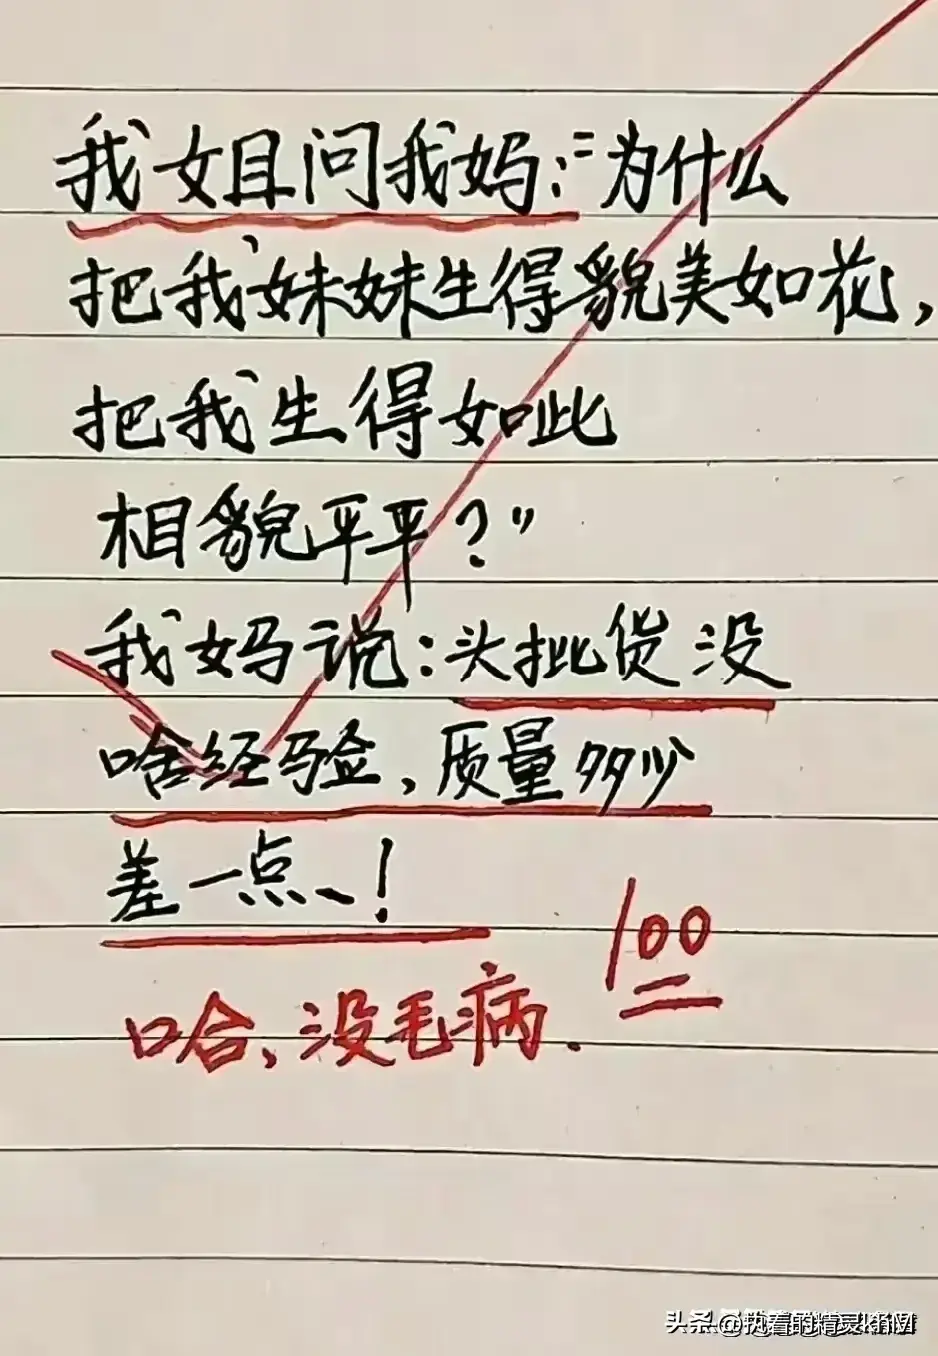 我姐问我妈:“为什么
把我妹妹生得貌美如花,
把我生得如此
相貌平平?”
我妈说:头批货没
啥经验,质量多少
差一点!
100
哈,没毛病.
头条@执着的精灵